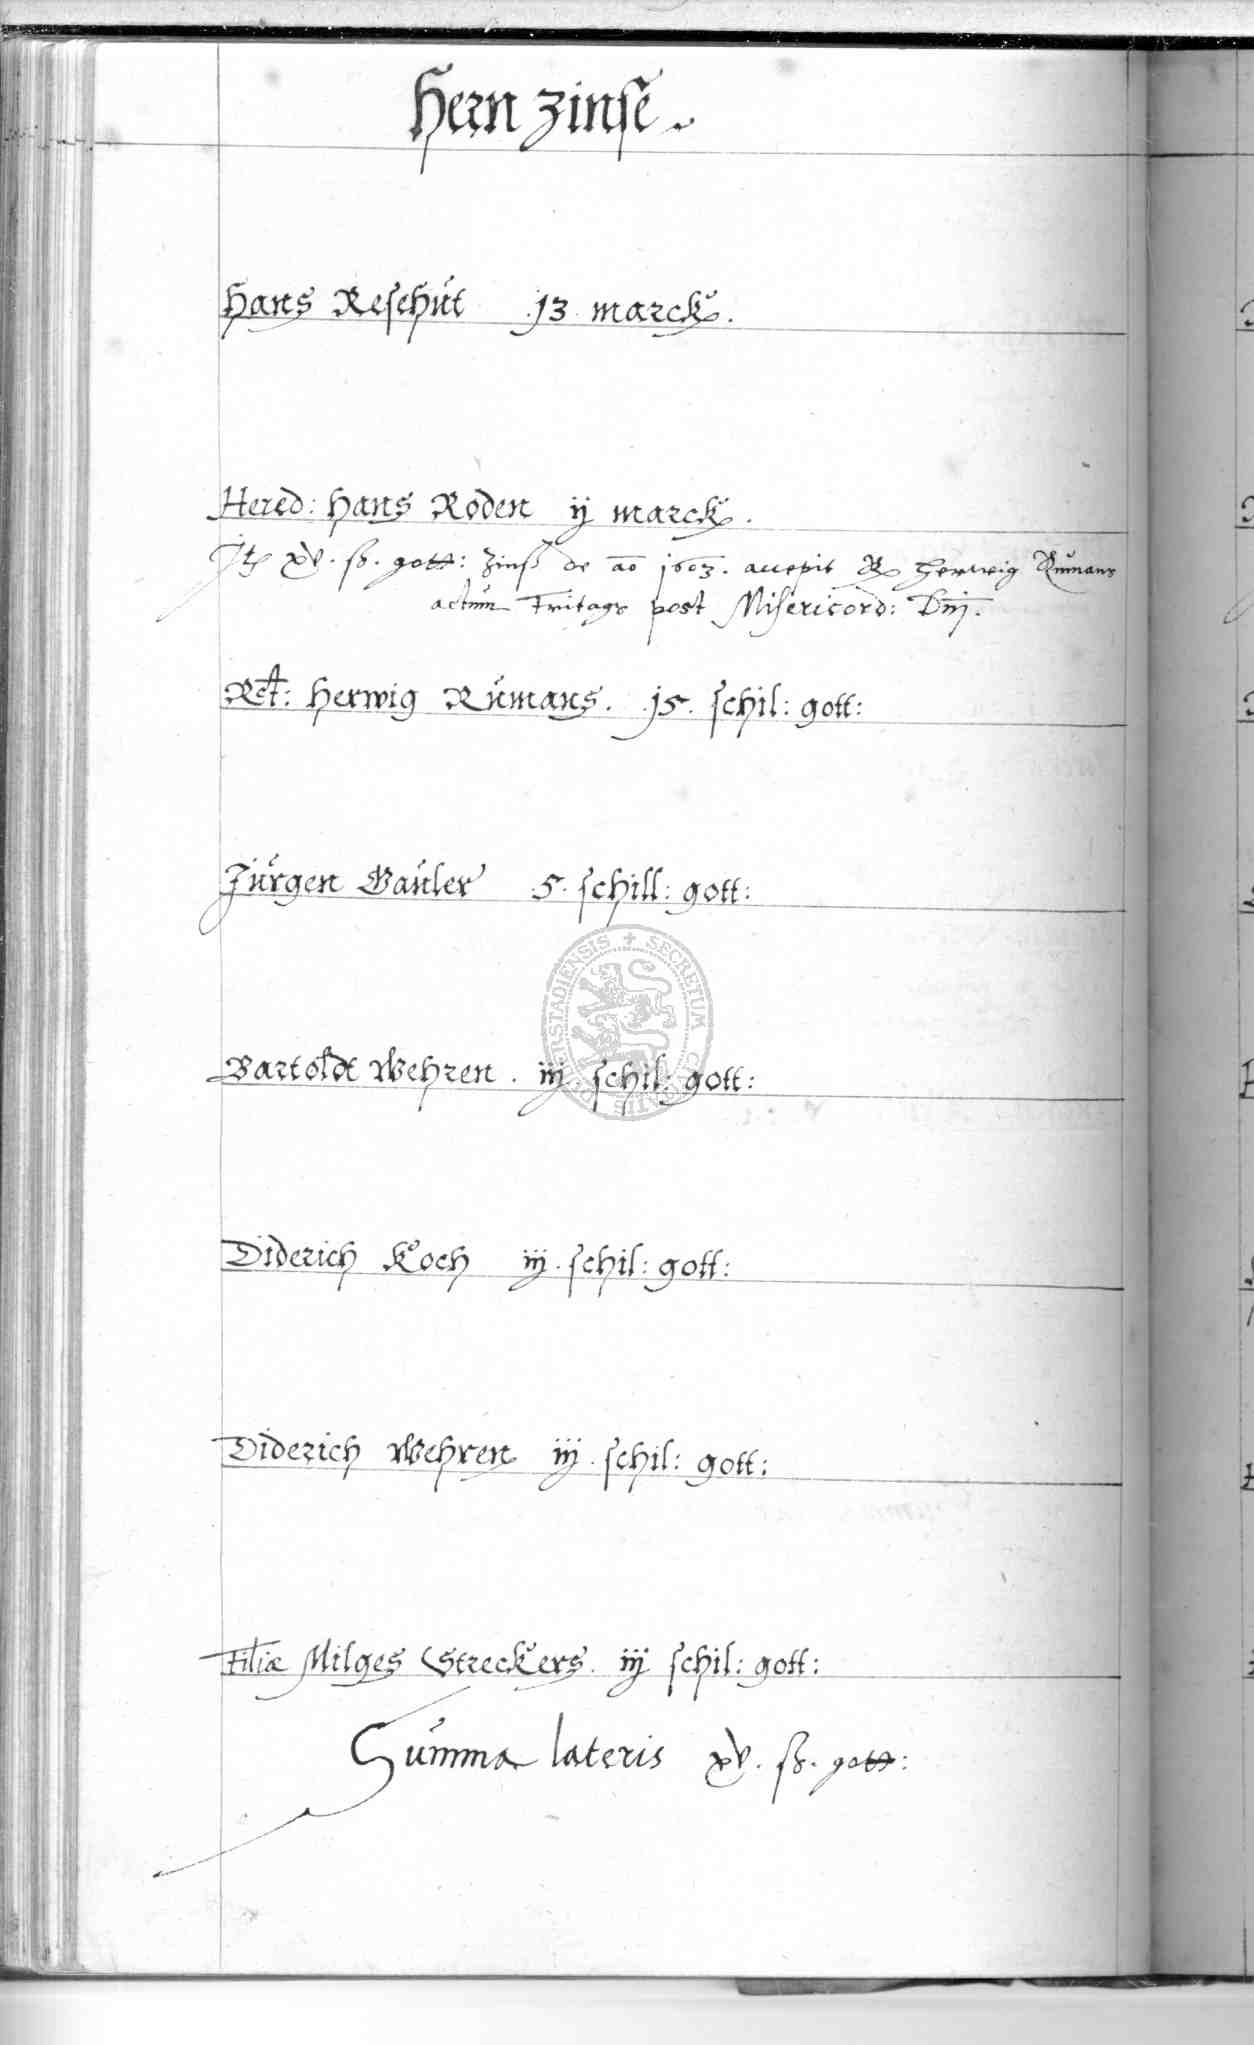 Hern zinse.
Hans Resehut 13 marck.
Hered: Hans Roden ij marck.
Ite xv. ß. gott: Zinß de ao 1603. accepit R Herwig Rumans
actum Fritags post Misericord: Dnj.
Rct: Herwig Rümans. 15. schil: gott:
Jürgen Gauler 5. schill: gott:
Bartoldt Wehren. iij schil: gott:
Diderich Koch iij. schil: gott:
Diderich Wehren iij. schil: gott:
Filiæ Milges Streckers. iij schil: gott:
Summa lateris xv. ß. gott:
SECRETUM